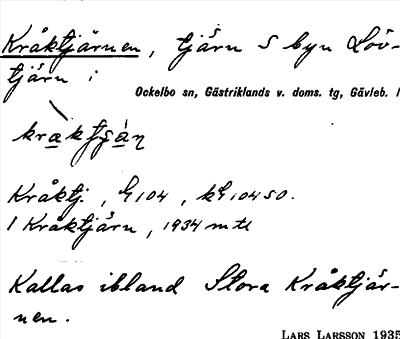 Kråktjärnen, tjärn S byn Löv-
tjärn i
Ockelbo sn, Gästriklands v. doms. tg, Gävleb. l
kraktjan
Kråktj., 104, k 10450.
1 Kråktjärn, 1934 mtl
Kallas ibland Stora Kråktjär-
nen.
LARS LARSSON 1935